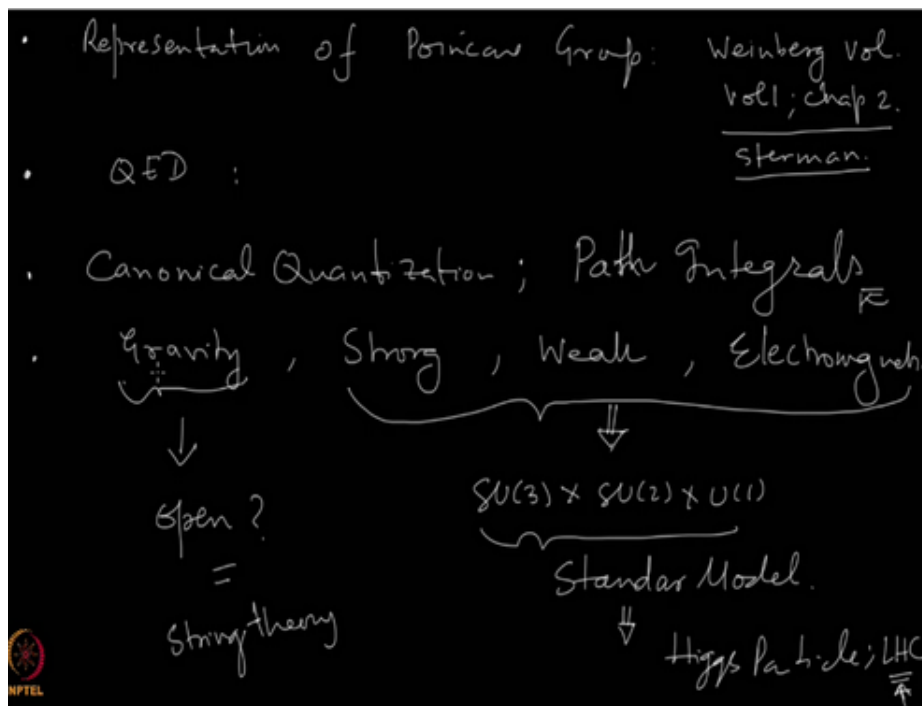 • Representation of Poincare Group: Weinberg Vol.
Vol1; Chap 2.
Sterman.
• QED :
• Canonical Quantization; Path Integrals
• Gravity, Strong, Weak, Electromagnet
↓ ⇓
Open? SU(3) x SU(2) x U(1)
=
Standar Model.
String theory ⇓
Higgs Particle; LHC
NPTEL